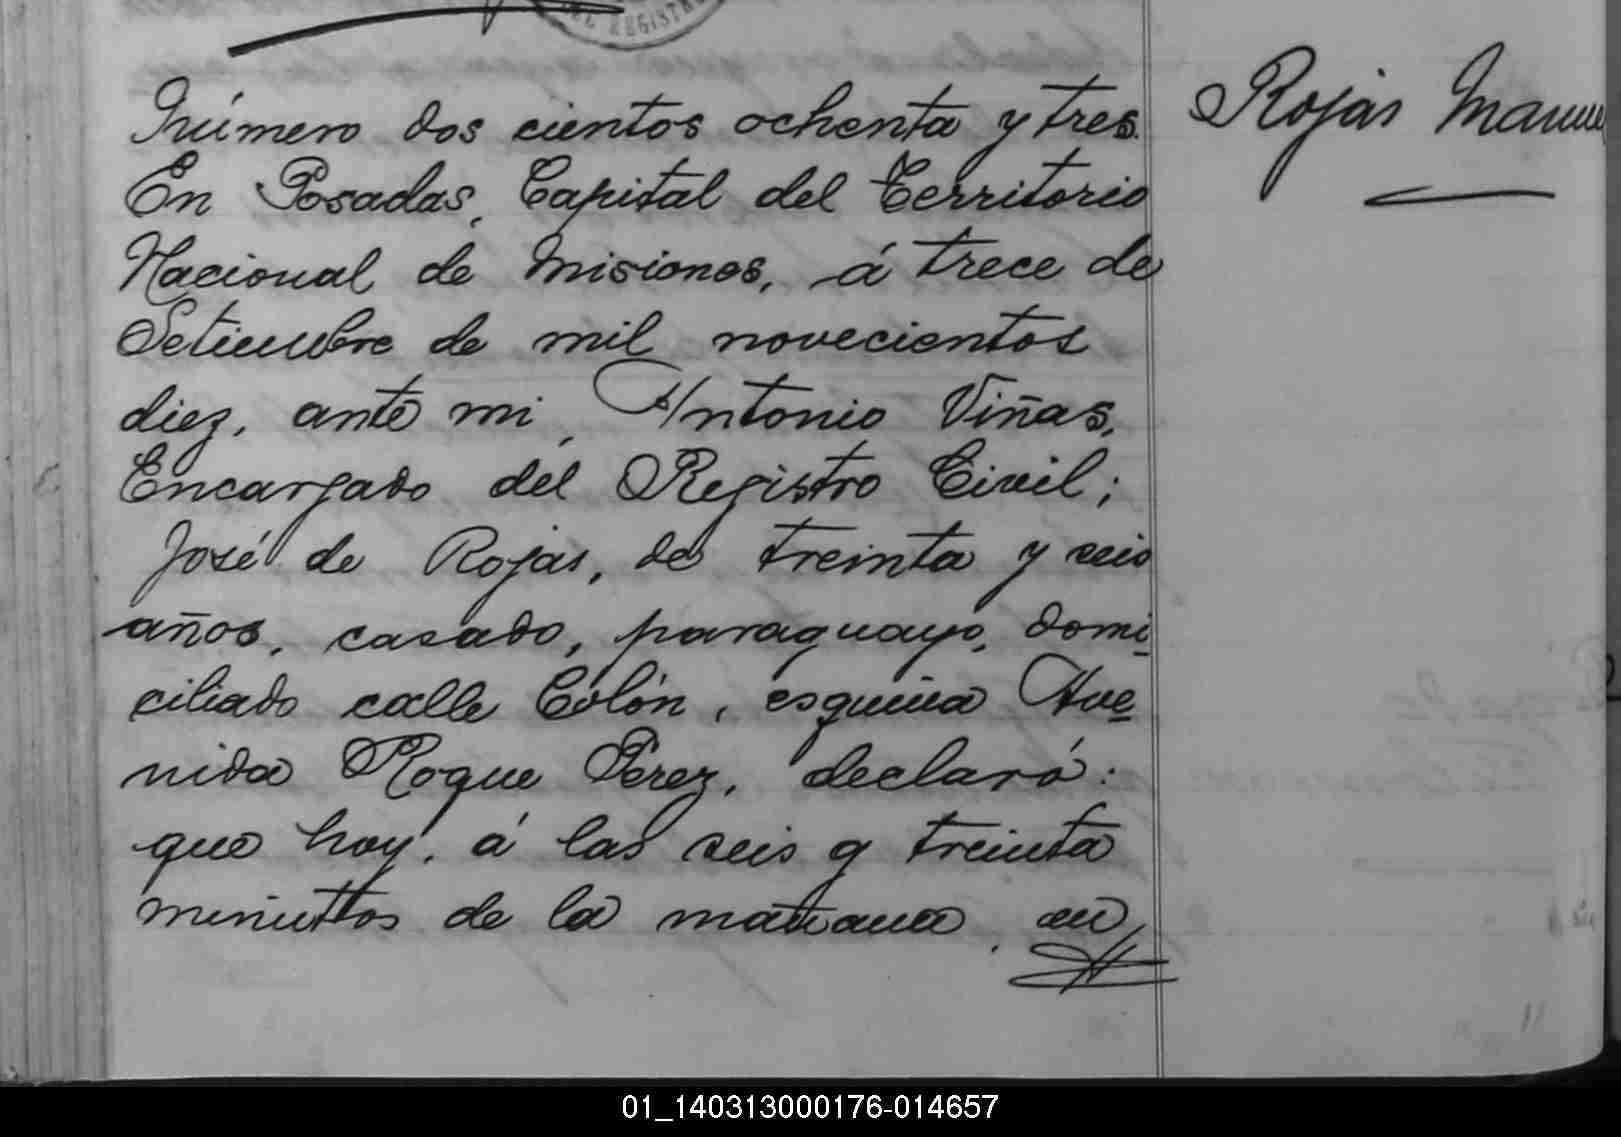 DEL REGISTR
Número dos cientos ochenta y tres.
En Posadas, Capital del Territorio
Nacional de Misiones, á trece de
Setiembre de mil novecientos
diez, ante mi, Antonio Viñas,
Encargado del Registro Civil;
José de Rojas, de treinta y seis
años, casado, paraguayo, domi-
ciliado calle Colón, esquina Ave-
nida Roque Perez, declaró:
que hoy, á las seis y treinta
minuttos de la mañana, en
Rojas Manuel
01_140313000176-014657